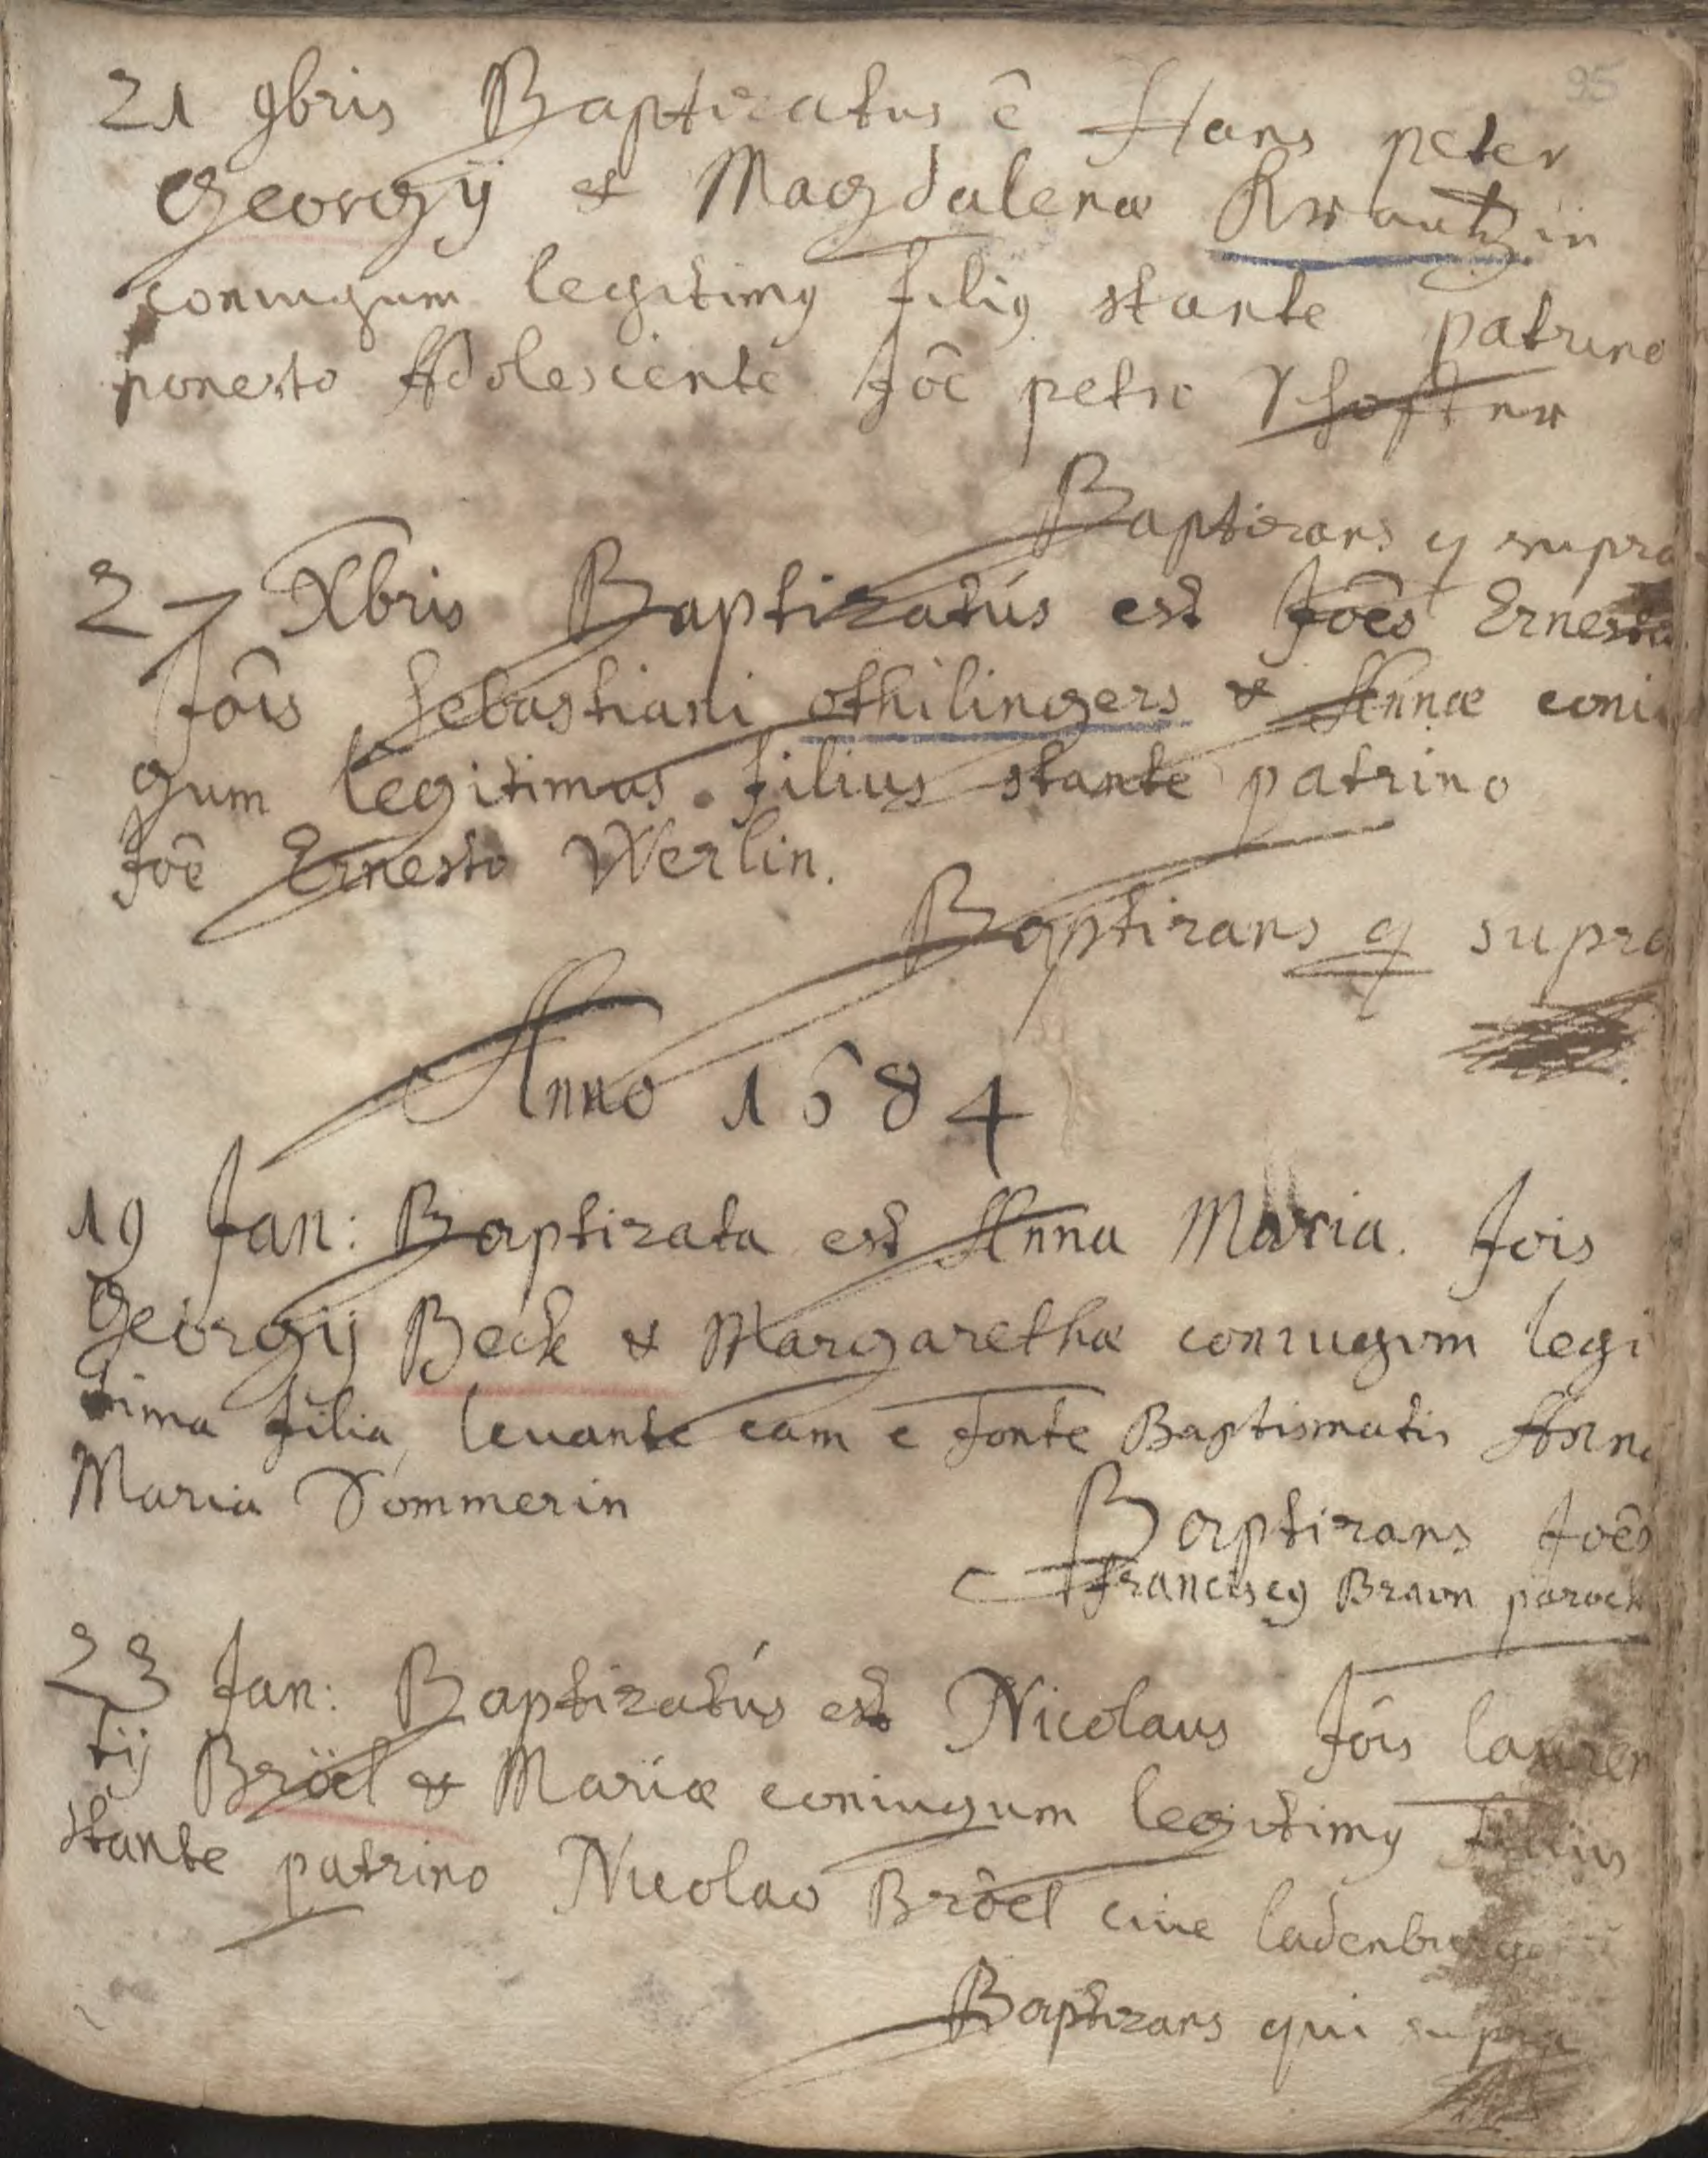 95
21 9bris Baptizatus ē Hans peter
Georgÿ & Magdalenæ Krautzin
coniugum legitimq filiq stante patrino
honesto Adolescente Joê petro
Baptizans q supra
27 Xbris Baptizatús est Joês Ernestu
Jôis Sebastiani othilingers & Annæ coniu
gum legitimus filius stante patrino
Joê Ernesto Werlin.
Baptizans q supra
Anno 1684
19 Jan: Baptizata est Anna Maria. Jois
Georgij Beck & Margarethæ coniugum legi
tima filia, leuante eam e fonte Baptismatis Anna
Maria Sommerin
Baptizans Joês
Franciscq Braun paroch
23 Jan: Baptizatús est Nicolaus Jôis lauren
tij Bröel & Mariæ coniugum legitimq filius
stante patrino Nicolao Brôel ciue ladenburg
Baptizans qui supra